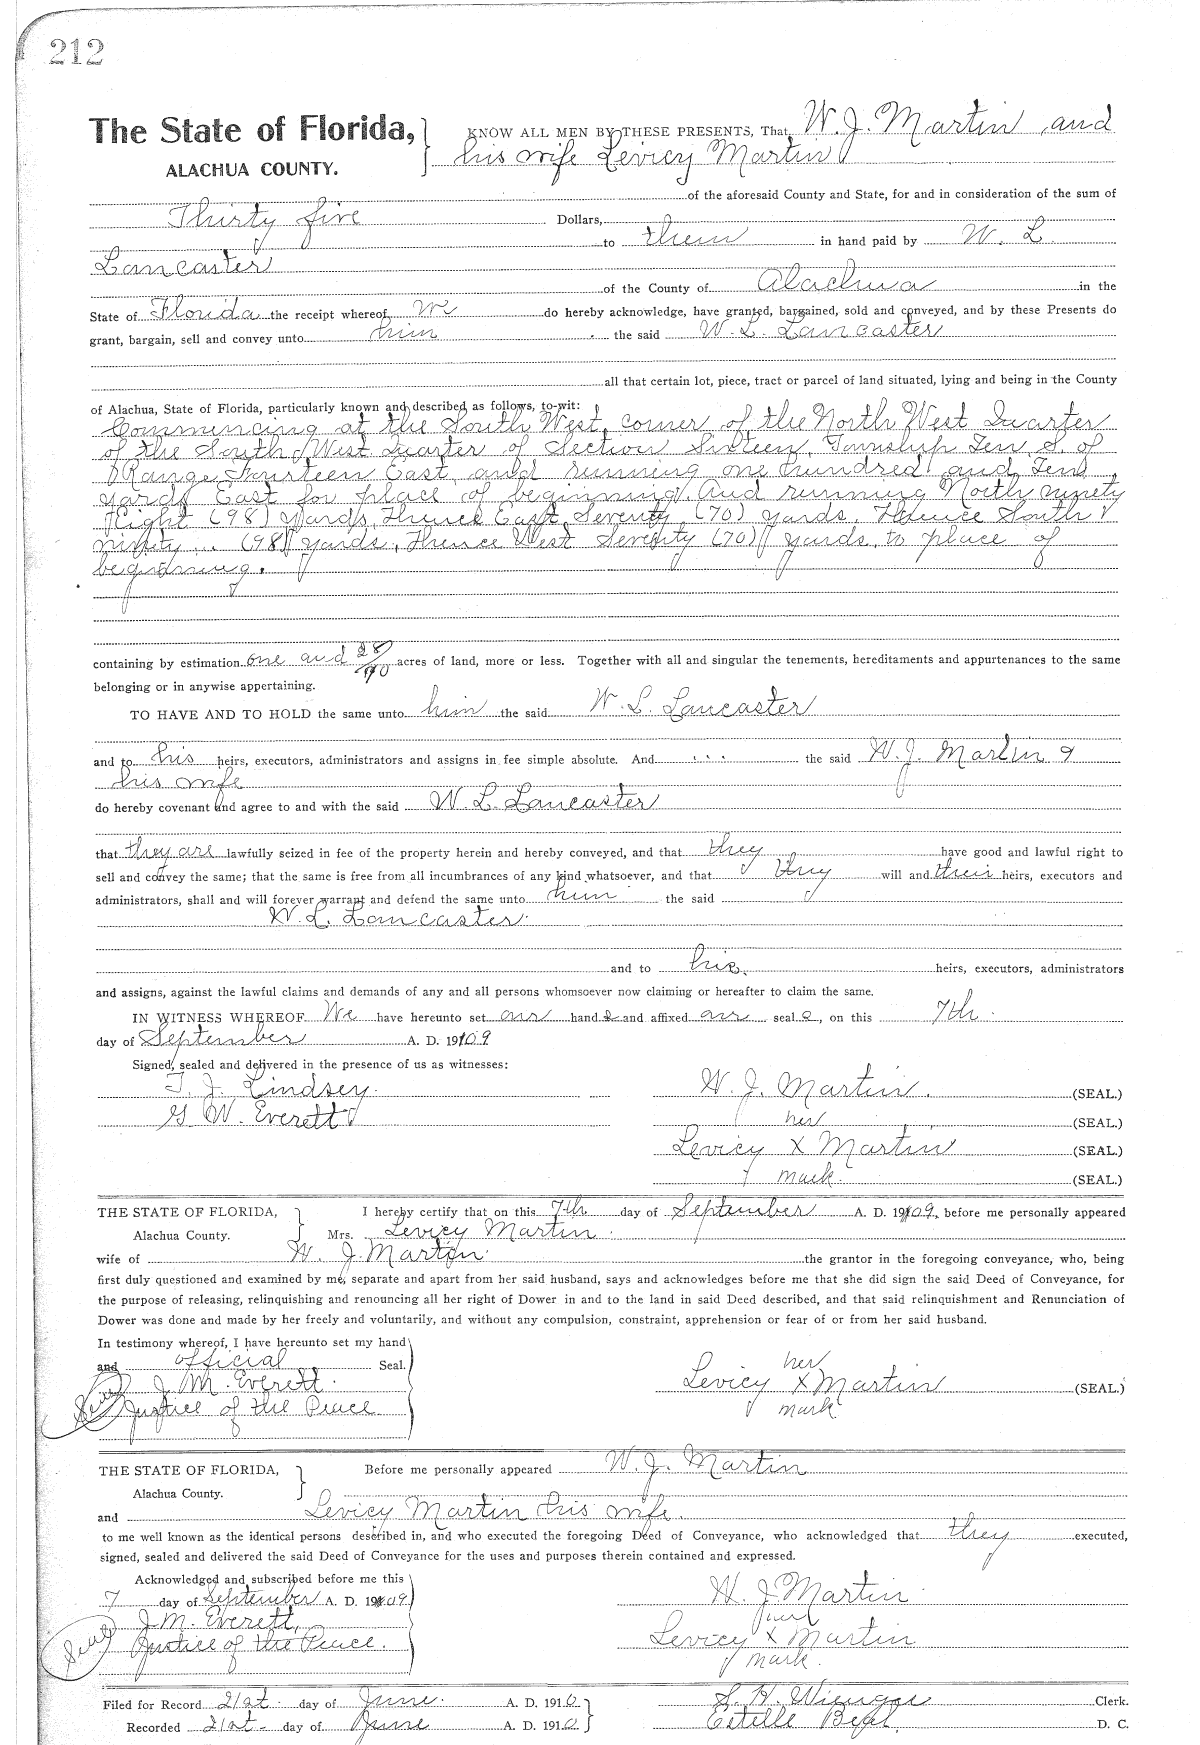 212
The State of Florida,
ALACHUA COUNTY.
KNOW ALL MEN BY THESE PRESENTS, That W. J. Martin and
his wife Levicy Martin
of the aforesaid County and State, for and in consideration of the sum of
Thirty five Dollars,
to them in hand paid by W. L.
Lancaster
of the County of Alachua in the
State of Florida the receipt whereof we do hereby acknowledge, have granted, bargained, sold and conveyed, and by these Presents do
grant, bargain, sell and convey unto him the said W. L. Lancaster
all that certain lot, piece, tract or parcel of land situated, lying and being in the County
of Alachua, State of Florida, particularly known and described as follows, to-wit:
Commencing at the South West, corner of the North West Quarter
of the South West Quarter of Section Sixteen, Township Ten S. of
Range Fourteen East, and running one hundred and Ten
yards East for place of beginning. And running North ninety
Eight (98) yards, Thence East Seventy (70) yards, Thence South
ninety ... (98) yards, Thence West Seventy (70) yards, to place of
beginning.
containing by estimation one and 28/ acres of land, more or less. Together with all and singular the tenements, hereditaments and appurtenances to the same
belonging or in anywise appertaining.
TO HAVE AND TO HOLD the same unto him the said W. L. Lancaster
and to his heirs, executors, administrators and assigns in fee simple absolute. And ... the said W. J. Martin &
his wife
do hereby covenant and agree to and with the said W. L. Lancaster
that they are lawfully seized in fee of the property herein and hereby conveyed, and that they have good and lawful right to
sell and convey the same; that the same is free from all incumbrances of any kind whatsoever, and that they will and their heirs, executors and
administrators, shall and will forever warrant and defend the same unto him the said
W. L. Lancaster.
and to his heirs, executors, administrators
and assigns, against the lawful claims and demands of any and all persons whomsoever now claiming or hereafter to claim the same.
IN WITNESS WHEREOF We have hereunto set our hands and affixed our seals, on this 7th
day of September A. D. 1909
Signed, sealed and delivered in the presence of us as witnesses:
T. J. Lindsey. W. J. Martin. (SEAL.)
G W. Everett her (SEAL.)
Levicy X Martin (SEAL.)
mark. (SEAL.)
THE STATE OF FLORIDA, I hereby certify that on this 7th day of September A. D. 1909, before me personally appeared
Alachua County. Mrs. Levicy Martin
wife of W. J. Martin the grantor in the foregoing conveyance, who, being
first duly questioned and examined by me, separate and apart from her said husband, says and acknowledges before me that she did sign the said Deed of Conveyance, for
the purpose of releasing, relinquishing and renouncing all her right of Dower in and to the land in said Deed described, and that said relinquishment and Renunciation of
Dower was done and made by her freely and voluntarily, and without any compulsion, constraint, apprehension or fear of or from her said husband.
In testimony whereof, I have hereunto set my hand
and official Seal. her
J. M. Everett. Levicy X Martin (SEAL.)
Seal Justice of the Peace mark
THE STATE OF FLORIDA, Before me personally appeared W. J. Martin
Alachua County.
and Levicy Martin his wife.
to me well known as the identical persons described in, and who executed the foregoing Deed of Conveyance, who acknowledged that they executed,
signed, sealed and delivered the said Deed of Conveyance for the uses and purposes therein contained and expressed.
Acknowledged and subscribed before me this
7 day of September A. D. 1909. W. J. Martin
J. M. Everett, her
Seal Justice of the Peace. Levicy X Martin
mark.
Filed for Record 21st day of June. A. D. 1910 S. H. Wienges Clerk.
Recorded 21st day of June A. D. 1910 Estelle Beal. D. C.